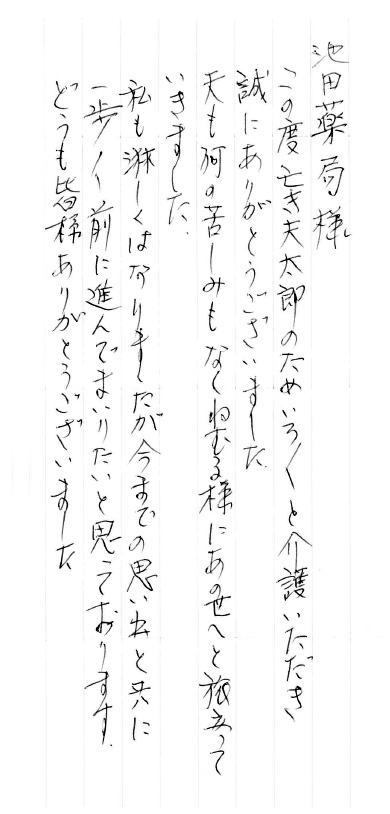 池田薬局様
この度亡き夫太郎のためいろ〱と介護いただき
誠にありがとうございました
夫も何の苦しみもなくねむる様にあの世へと旅立って
いきました。
私も淋しくはなりましたが今までの思い出と共に
一歩〱前に進んでまいりたいと思っております。
どうも皆様ありがとうございました